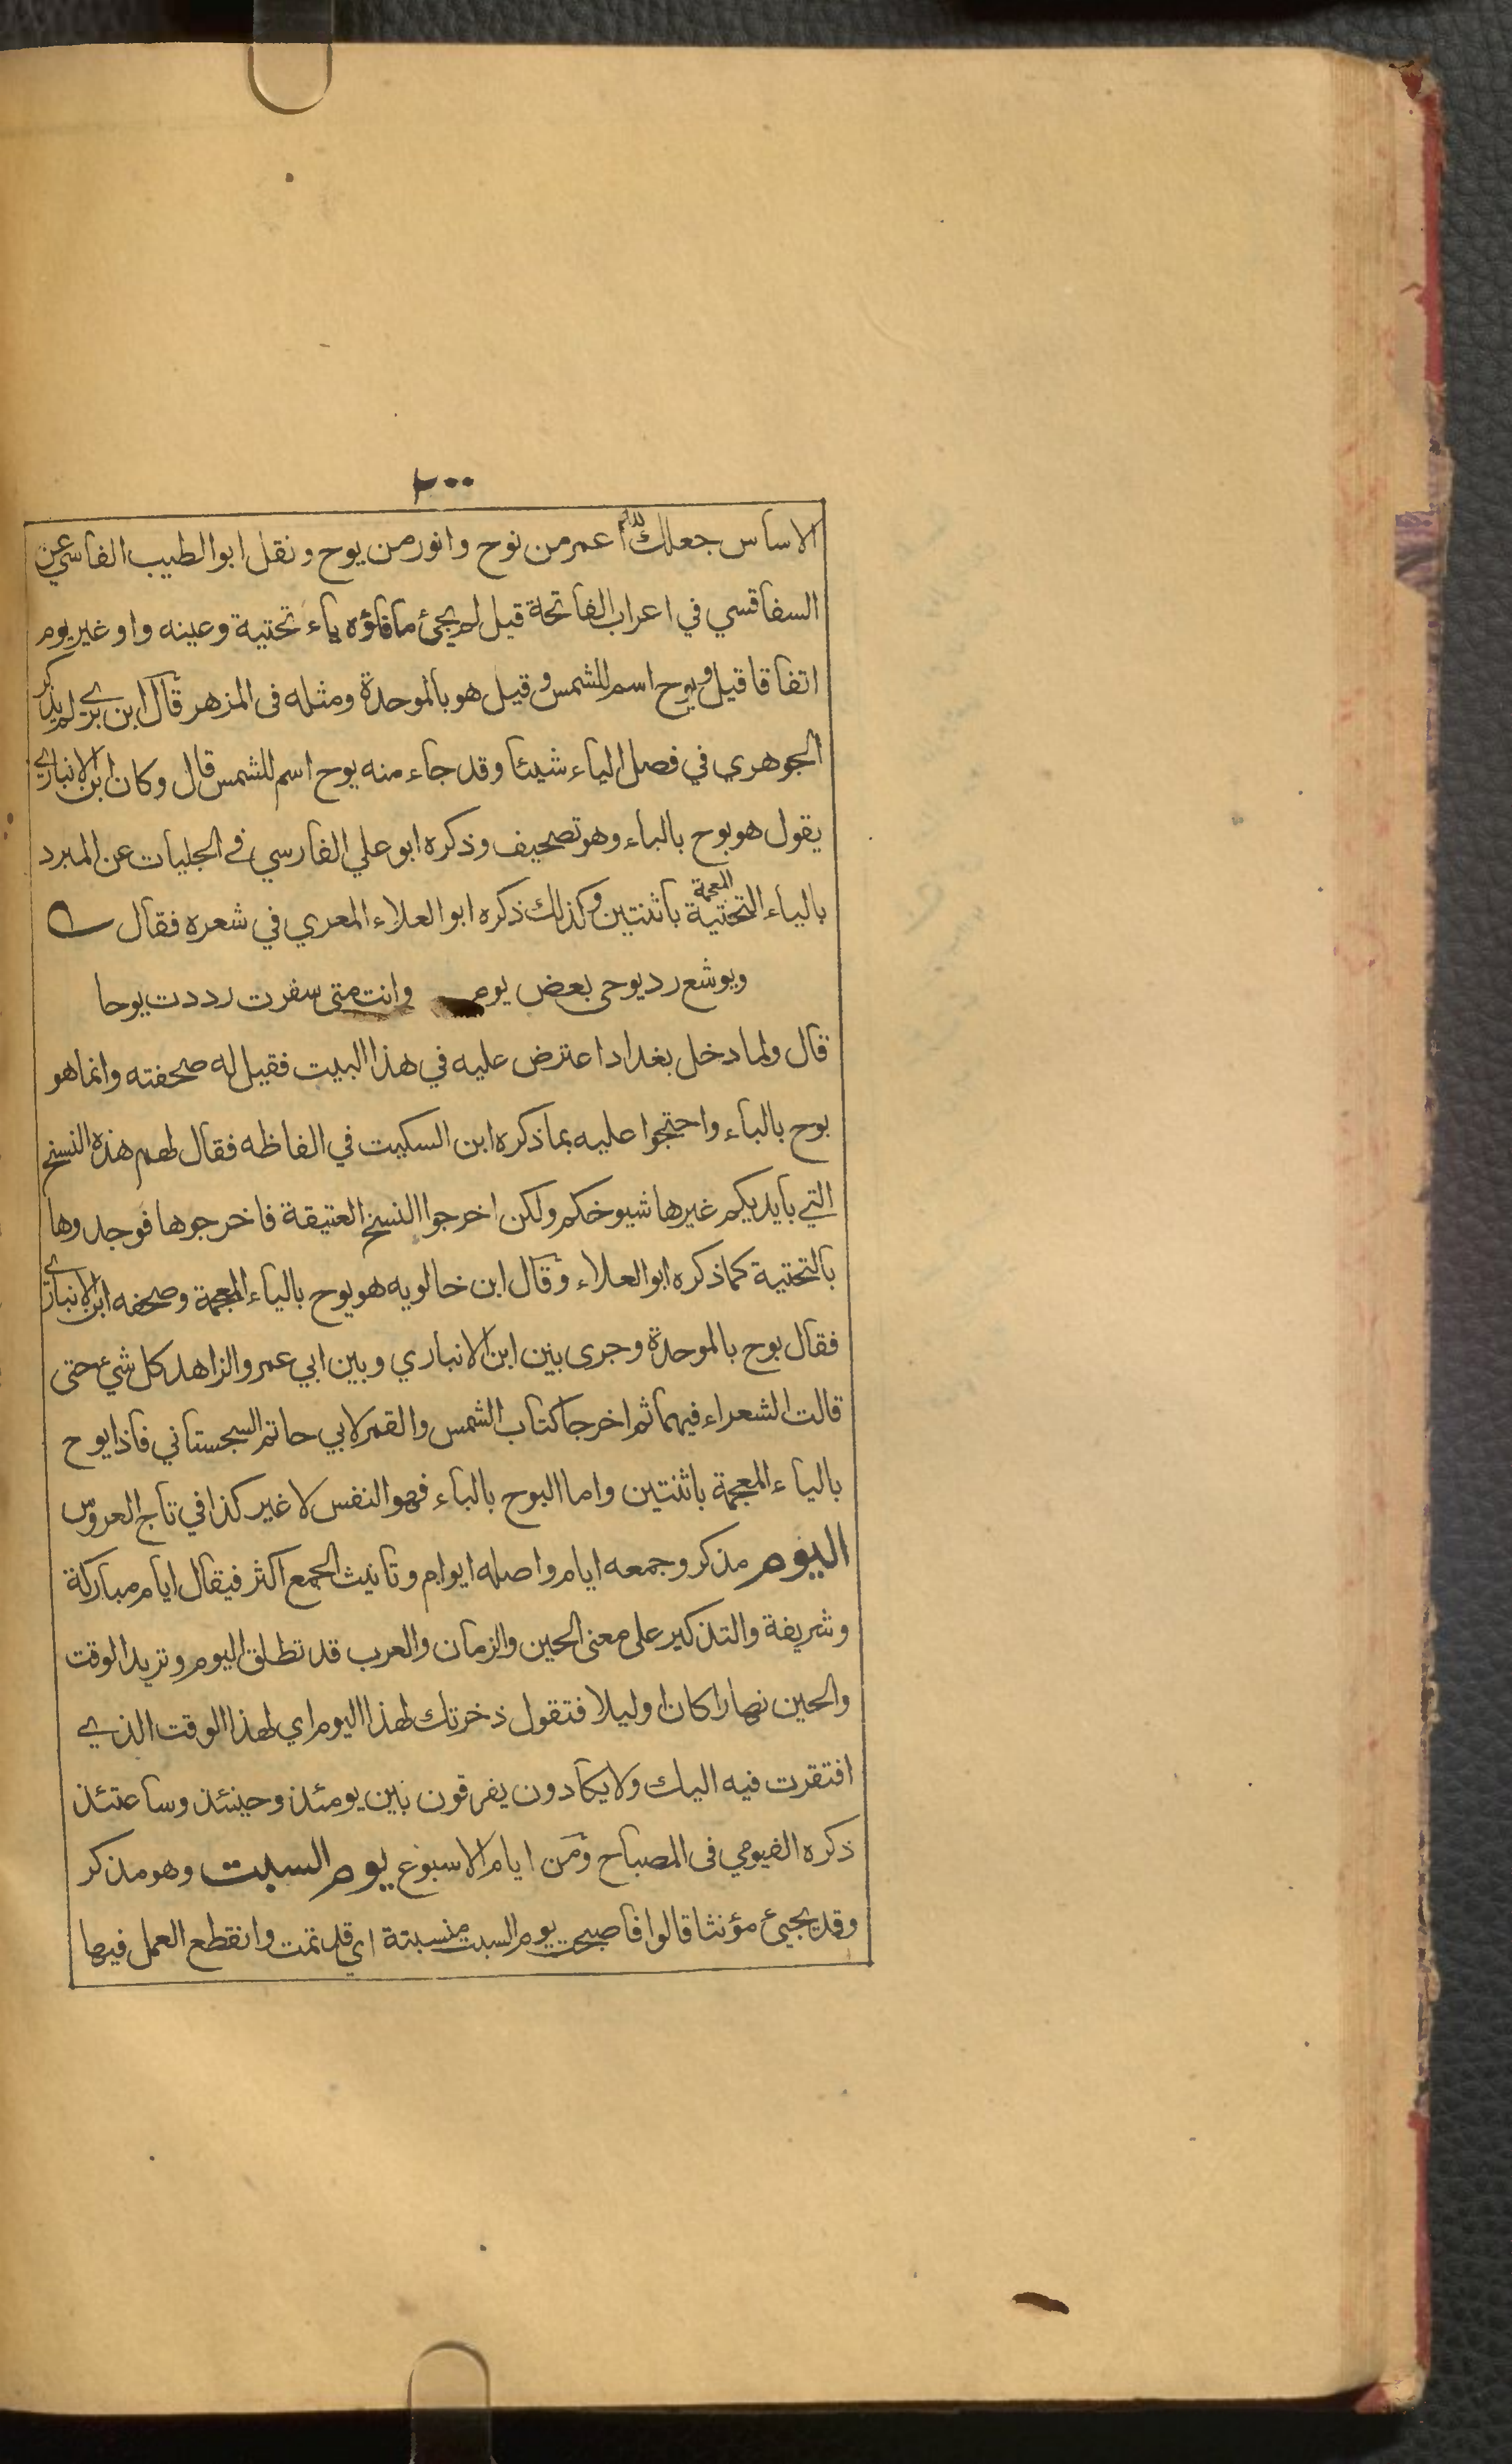 ٢٠٠
الاساس جعلك الله اعمر من نوح وانور من يوح ونقل ابو الطيب الفاسي عن
السفاقسي في اعراب الفاتحة قيل لم يجئ ما فاؤه ياء تحتية وعينه واو غير يوم
اتفاقا قيل ويوح اسم للشمس وقيل هو بالموحدة ومثله فى المزهر قال ابن بري لم يذكر
الجوهري في فصل الياء شيئا وقد جاء منه يوح اسم للشمس قال وكان ابن الانباري
يقول هو بوح بالباء وهو تصحيف وذكره ابو علي الفارسي في الحلبيات عن المبرد
بالياء التحتية المعجمة باثنتين وكذلك ذكره ابو العلاء المعري في شعره فقال
ويوشع رد يوحى بعض يوم وانت متى سفرت رددت يوحا
قال ولما دخل بغداد اعترض عليه في هذا البيت فقيل له صحفته وانما هو
بوح بالباء واحتجوا عليه بما ذكره ابن السكيت في الفاظه فقال لهم هذه النسخ
التي بايديكم غيرها شيوخكم ولكن اخرجوا النسخ العتيقة فاخرجوها فوجدوها
بالتحتية كما ذكره ابو العلاء وقال ابن خالويه هو يوح بالياء المعجمة وصحفه ابن الانباري
فقال بوح بالموحدة وجرى بين ابن الانباري وبين ابي عمر والزاهد كل شيء حتى
قالت الشعراء فيهما ثم اخرجا كتاب الشمس والقمر لابي حاتم السجستاني فاذا يوح
بالياء المعجمة باثنتين واما البوح بالباء فهو النفس لا غير كذا في تاج العروس
اليوم مذكر وجمعه ايام واصله ايوام وتانيث الجمع اكثر فيقال ايام مباركة
وشريفة والتذكير على معنى الحين والزمان والعرب قد تطلق اليوم وتريد الوقت
والحين نهارا كان او ليلا فتقول ذخرتك لهذا اليوم اي لهذا الوقت الذي
افتقرت فيه اليك ولا يكادون يفرقون بين يومئذ وحينئذ وساعتئذ
ذكره الفيومي فى المصباح ومن ايام الاسبوع يوم السبت وهو مذكر
وقد يجيئ مؤنثا قالوا فاصبحت يوم السبت منسبتة اي قد تمت وانقطع العمل فيها